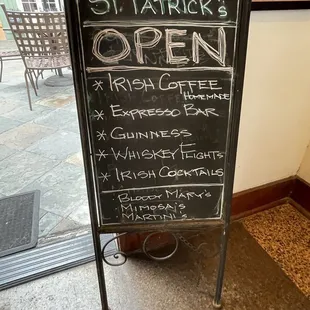 ST. PATRICK'S
OPEN
* IRISH COFFEE
HOMEMADE
* EXPRESSO BAR
* GUINNESS
* WHISKEY FLIGHTS
* IRISH COCKTAILS
• BLOODY MARY'S
• MIMOSA'S
• MARTINI'S